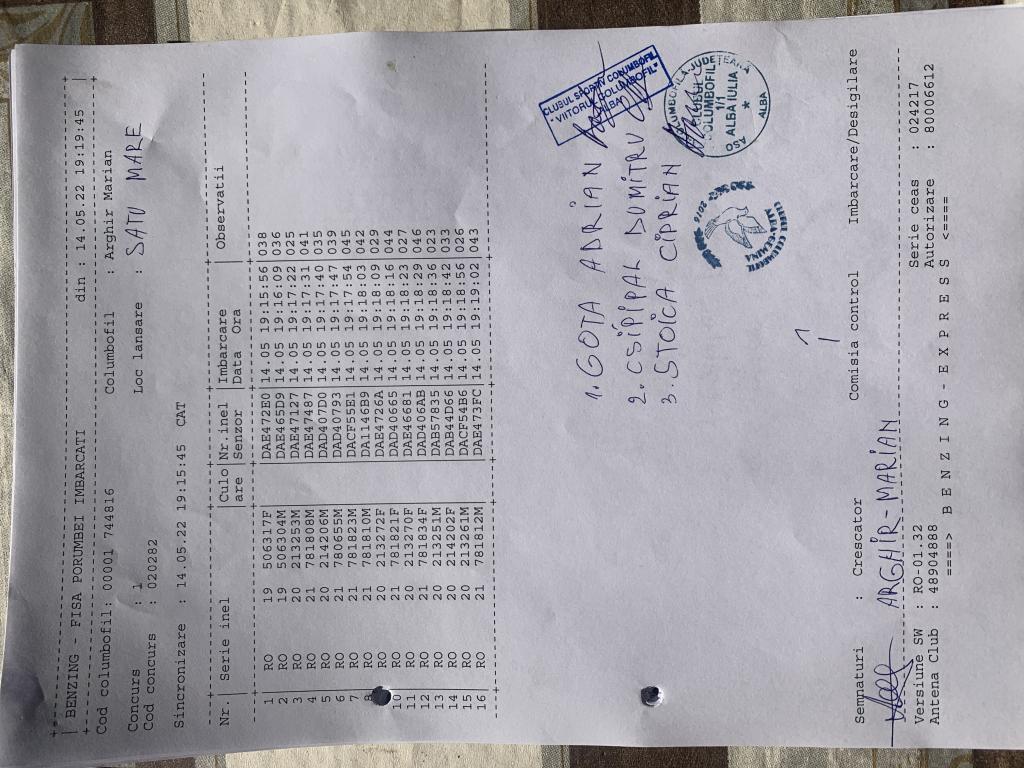 BENZING - FISA PORUMBEI IMBARCATI din : 14.05.22 19:19:45
Cod columbofil: 00001 744816 Columbofil : Arghir Marian
Concurs : 1 Loc lansare : SATU MARE
Cod concurs : 020282
Sincronizare : 14.05.22 19:15:45 CAT
Nr. Serie inel Culo Nr.inel Imbarcare Observatii
are Senzor Data Ora
1 RO 19 506317F DAE472E0 14.05 19:15:56 038
2 RO 19 506304M DAE465D9 14.05 19:16:09 036
3 RO 20 213253M DAE47127 14.05 19:17:22 025
4 RO 21 781808M DAE47487 14.05 19:17:31 041
5 RO 20 214206M DAD407D0 14.05 19:17:40 035
6 RO 21 780655M DAD40793 14.05 19:17:47 039
7 RO 21 781823M DACF55B1 14.05 19:17:54 045
8 RO 21 781810M DA1146B9 14.05 19:18:03 042
RO 20 213272F DAE4728A 14.05 19:18:09 029
10 RO 21 781821F DAD406B5 14.05 19:18:16 044
11 RO 20 213270F DAE46681 14.05 19:18:23 027
12 RO 21 781834F DAD406AB 14.05 19:18:29 046
13 RO 20 213251M DAB57835 14.05 19:18:36 023
14 RO 20 214202F DAB44D66 14.05 19:18:42 033
15 RO 20 213261M DACF54B6 14.05 19:18:56 026
16 RO 21 781812M DAE473FC 14.05 19:19:02 043
1. GOTA ADRIAN
2. CSIPIPAL DUMITRU
3. STOICA CIPRIAN
CLUBUL SPORTIV COLUMBOFIL
"VIITORUL COLUMBOFIL"
ALBA
COLUMBOFILA JUDETEANA
CLUBUL
COLUMBOFIL
1/1
ALBA IULIA
ASO ★ ALBA
Semnaturi : Crescator Comisia control Imbarcare/Desigilare
ARGHIR-MARIAN
Versiune SW : RO-01.32 Serie ceas : 024217
Antena Club : 48904888 Autorizare : 80006612
====> B E N Z I N G - E X P R E S S <====